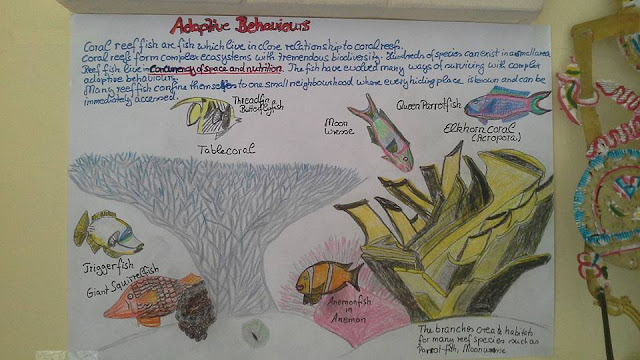 Adaptive Behaviours
Coral reef fish are fish which live in close relationship to coral reef.
Coral reefs form complex ecosystems with tremendous biodiversity. Hundreds of species can exist in a small area.
Reef fish live in Concurrency of space and nutrition. The fish have evolved many ways of surviving with complex
adaptive behaviour.
Many reef fish confine themselfes to one small neighbourhood where every hiding place is known and can be
immediately accessed.
Threadfin
Butterflyfish
Moon
wrasse
Queen Parrotfish
Elkhorn coral
(Acropora)
Table coral
Triggerfish
Giant Squirrelfish
Anemonfish
in
Anemon
The branches create habitats
for many reef species such as
Parrot-fish, Moonwrasse